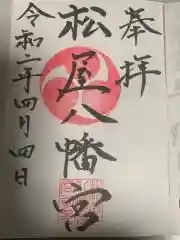 奉拝
松尾八幡宮
令和二年四月四日